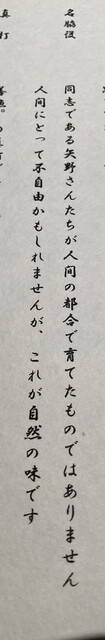 名脇役
同志である矢野さんたちが人間の都合で育てたものではありません
人間にとって不自由かもしれませんが、これが自然の味です
真打